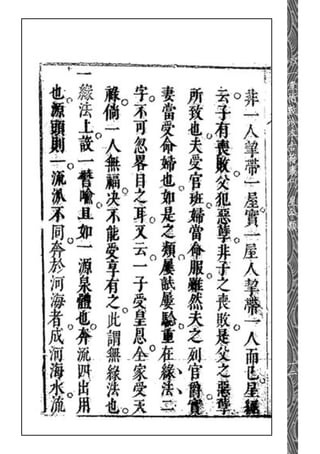 非一人挈帶一屋實一屋人挈帶一人而已星經
云子有喪敗父犯惡孽非子之喪敗是父之惡孽
所致也夫受官班婦當命服雖然夫之列官爵實
妻當受命婦也如是之類屢試屢驗重在緣法二
字不可忽畧目之耳又云一子受皇恩全家受天
祿倘一人無福决不能受享有之此謂無緣法也
一緣法上設一譬喻且如一源泉體也奔流四出用
也源頭則一流派不同奔於河海者成河海水流